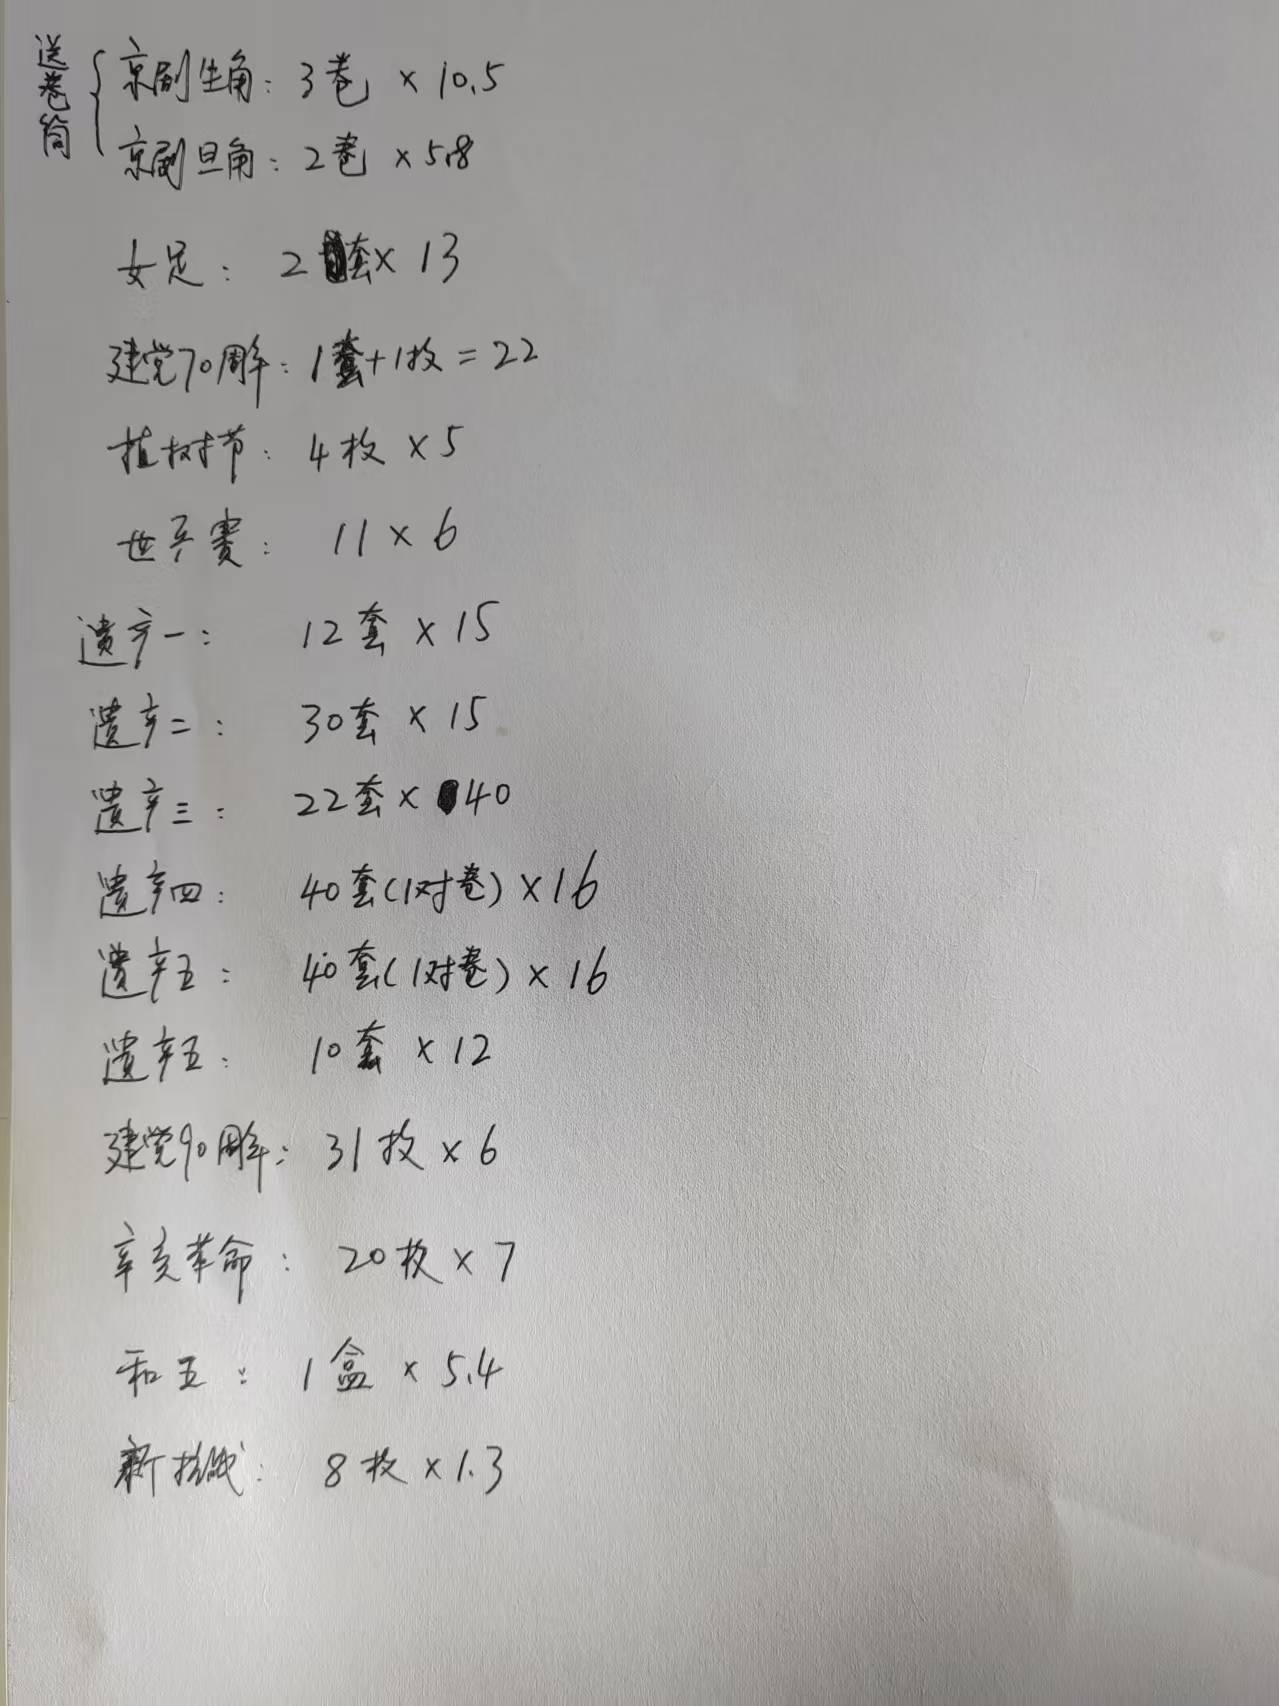 送卷筒
京剧生角：3卷 × 10.5
京剧旦角：2卷 × 5.8
女足： 2套× 13
建党70周年：1套+1枚=22
植树节：4枚 × 5
世乒赛： 11 × 6
遗产一： 12套 × 15
遗产二： 30套 × 15
遗产三： 22套 × 40
遗产四： 40套(1对卷) × 16
遗产五： 40套(1对卷) × 16
遗产五： 10套 × 12
建党90周年：31枚 × 6
辛亥革命： 20枚 × 7
和五： 1盒 × 5.4
新 8枚 × 1.3